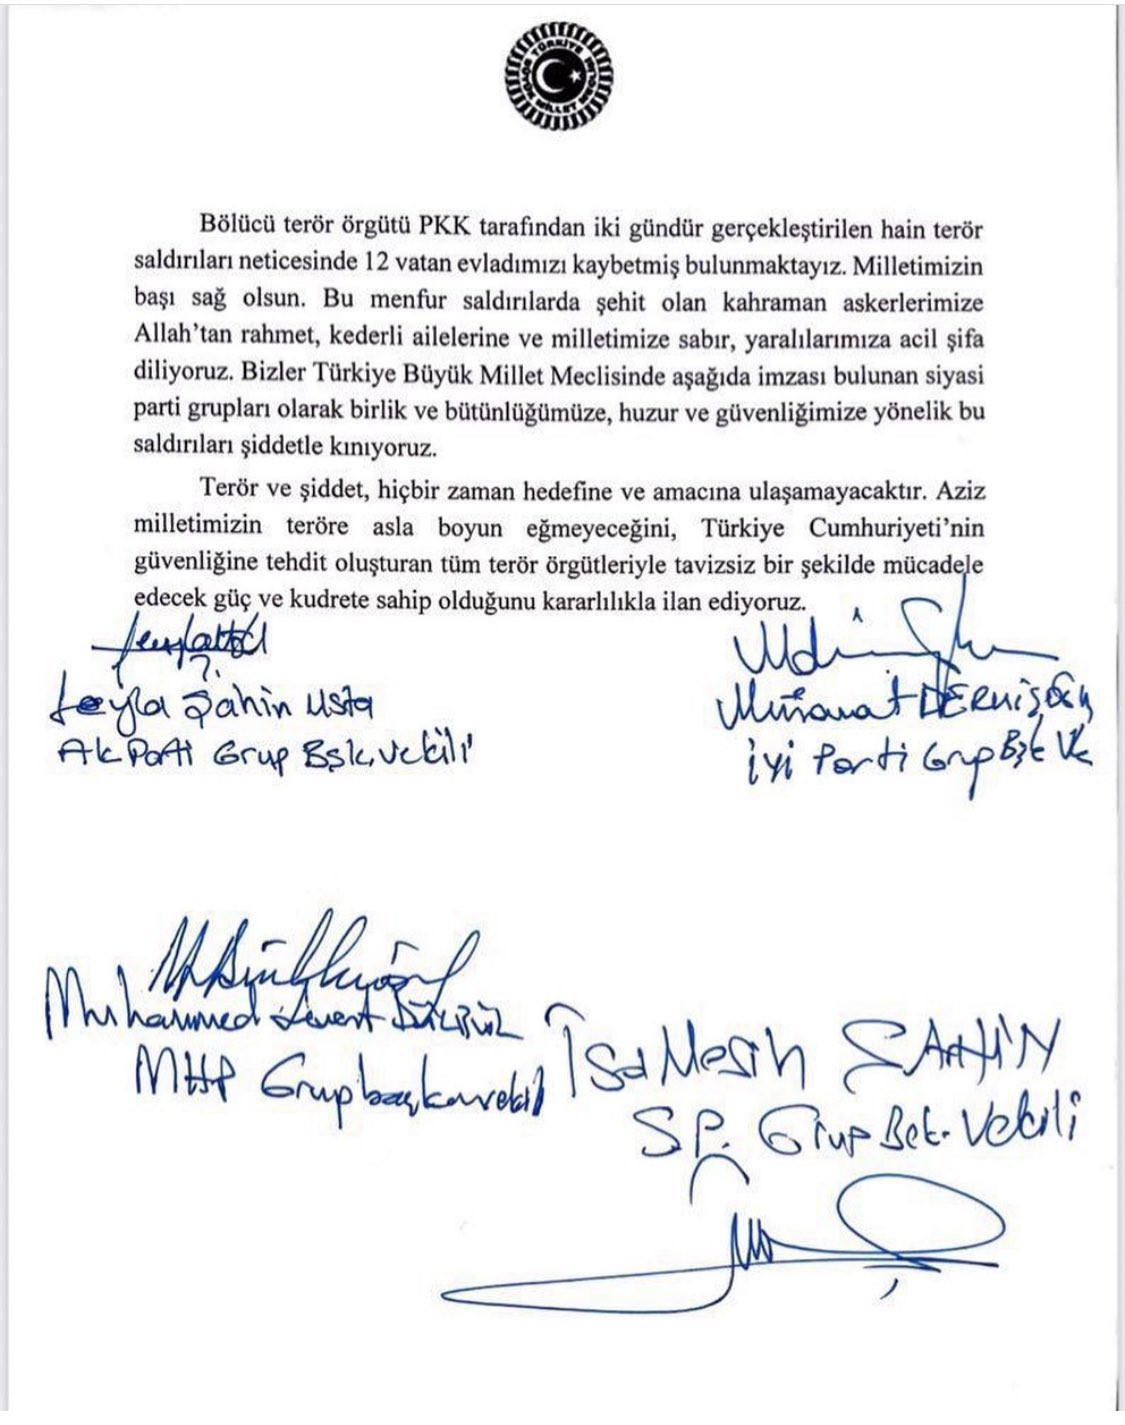 TÜRKİYE BÜYÜK MİLLET MECLİSİ
Bölücü terör örgütü PKK tarafından iki gündür gerçekleştirilen hain terör
saldırıları neticesinde 12 vatan evladımızı kaybetmiş bulunmaktayız. Milletimizin
başı sağ olsun. Bu menfur saldırılarda şehit olan kahraman askerlerimize
Allah’tan rahmet, kederli ailelerine ve milletimize sabır, yaralılarımıza acil şifa
diliyoruz. Bizler Türkiye Büyük Millet Meclisinde aşağıda imzası bulunan siyasi
parti grupları olarak birlik ve bütünlüğümüze, huzur ve güvenliğimize yönelik bu
saldırıları şiddetle kınıyoruz.
Terör ve şiddet, hiçbir zaman hedefine ve amacına ulaşamayacaktır. Aziz
milletimizin teröre asla boyun eğmeyeceğini, Türkiye Cumhuriyeti’nin
güvenliğine tehdit oluşturan tüm terör örgütleriyle tavizsiz bir şekilde mücadele
edecek güç ve kudrete sahip olduğunu kararlılıkla ilan ediyoruz.
Leyla Şahin Usta
Ak Parti Grup Bşk. Vekili
Müsavat DERVİŞOĞLU
İYİ Parti Grup Bşk Vk
Muhammed Levent BÜLBÜL
MHP Grup başkanvekili
İsa Mesih ŞAHİN
SP. Grup Bşk. Vekili